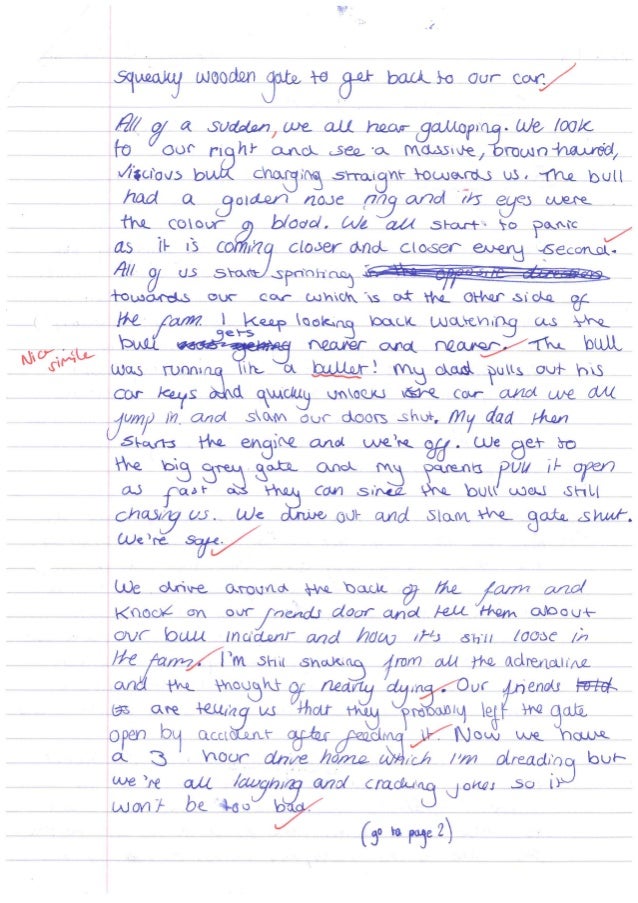 squeaky wooden gate to get back to our car.
All of a sudden, we all hear galloping. We look
to our right and see a massive, brown haired,
viscious bull charging straight towards us. The bull
had a golden nose ring and its eyes were
the colour of blood. We all start to panic
as it is coming closer and closer every second.
All of us start sprinting in the opposite direction
towards our car which is at the other side of
the farm. I keep looking back watching as the
gets
bull getting nearer and nearer. The bull
Nice
simile
was running like a bullet! My dad pulls out his
car keys and quickly unlocks the car and we all
jump in and slam our doors shut. My dad then
starts the engine and we're off. We get to
the big grey gate and my parents pull it open
as fast as they can since the bull was still
chasing us. We drive out and slam the gate shut.
We're safe.
We drive around the back of the farm and
knock on our friends door and tell them about
our bull incident and how it's still loose in
the farm. I'm still shaking from all the adrenaline
and the thought of nearly dying. Our friends told
us are telling us that they probably left the gate
open by accident after feeding it. Now we have
a 3 hour drive home which I'm dreading but
we're all laughing and cracking jokes so it
won't be too bad.
(go to page 2)